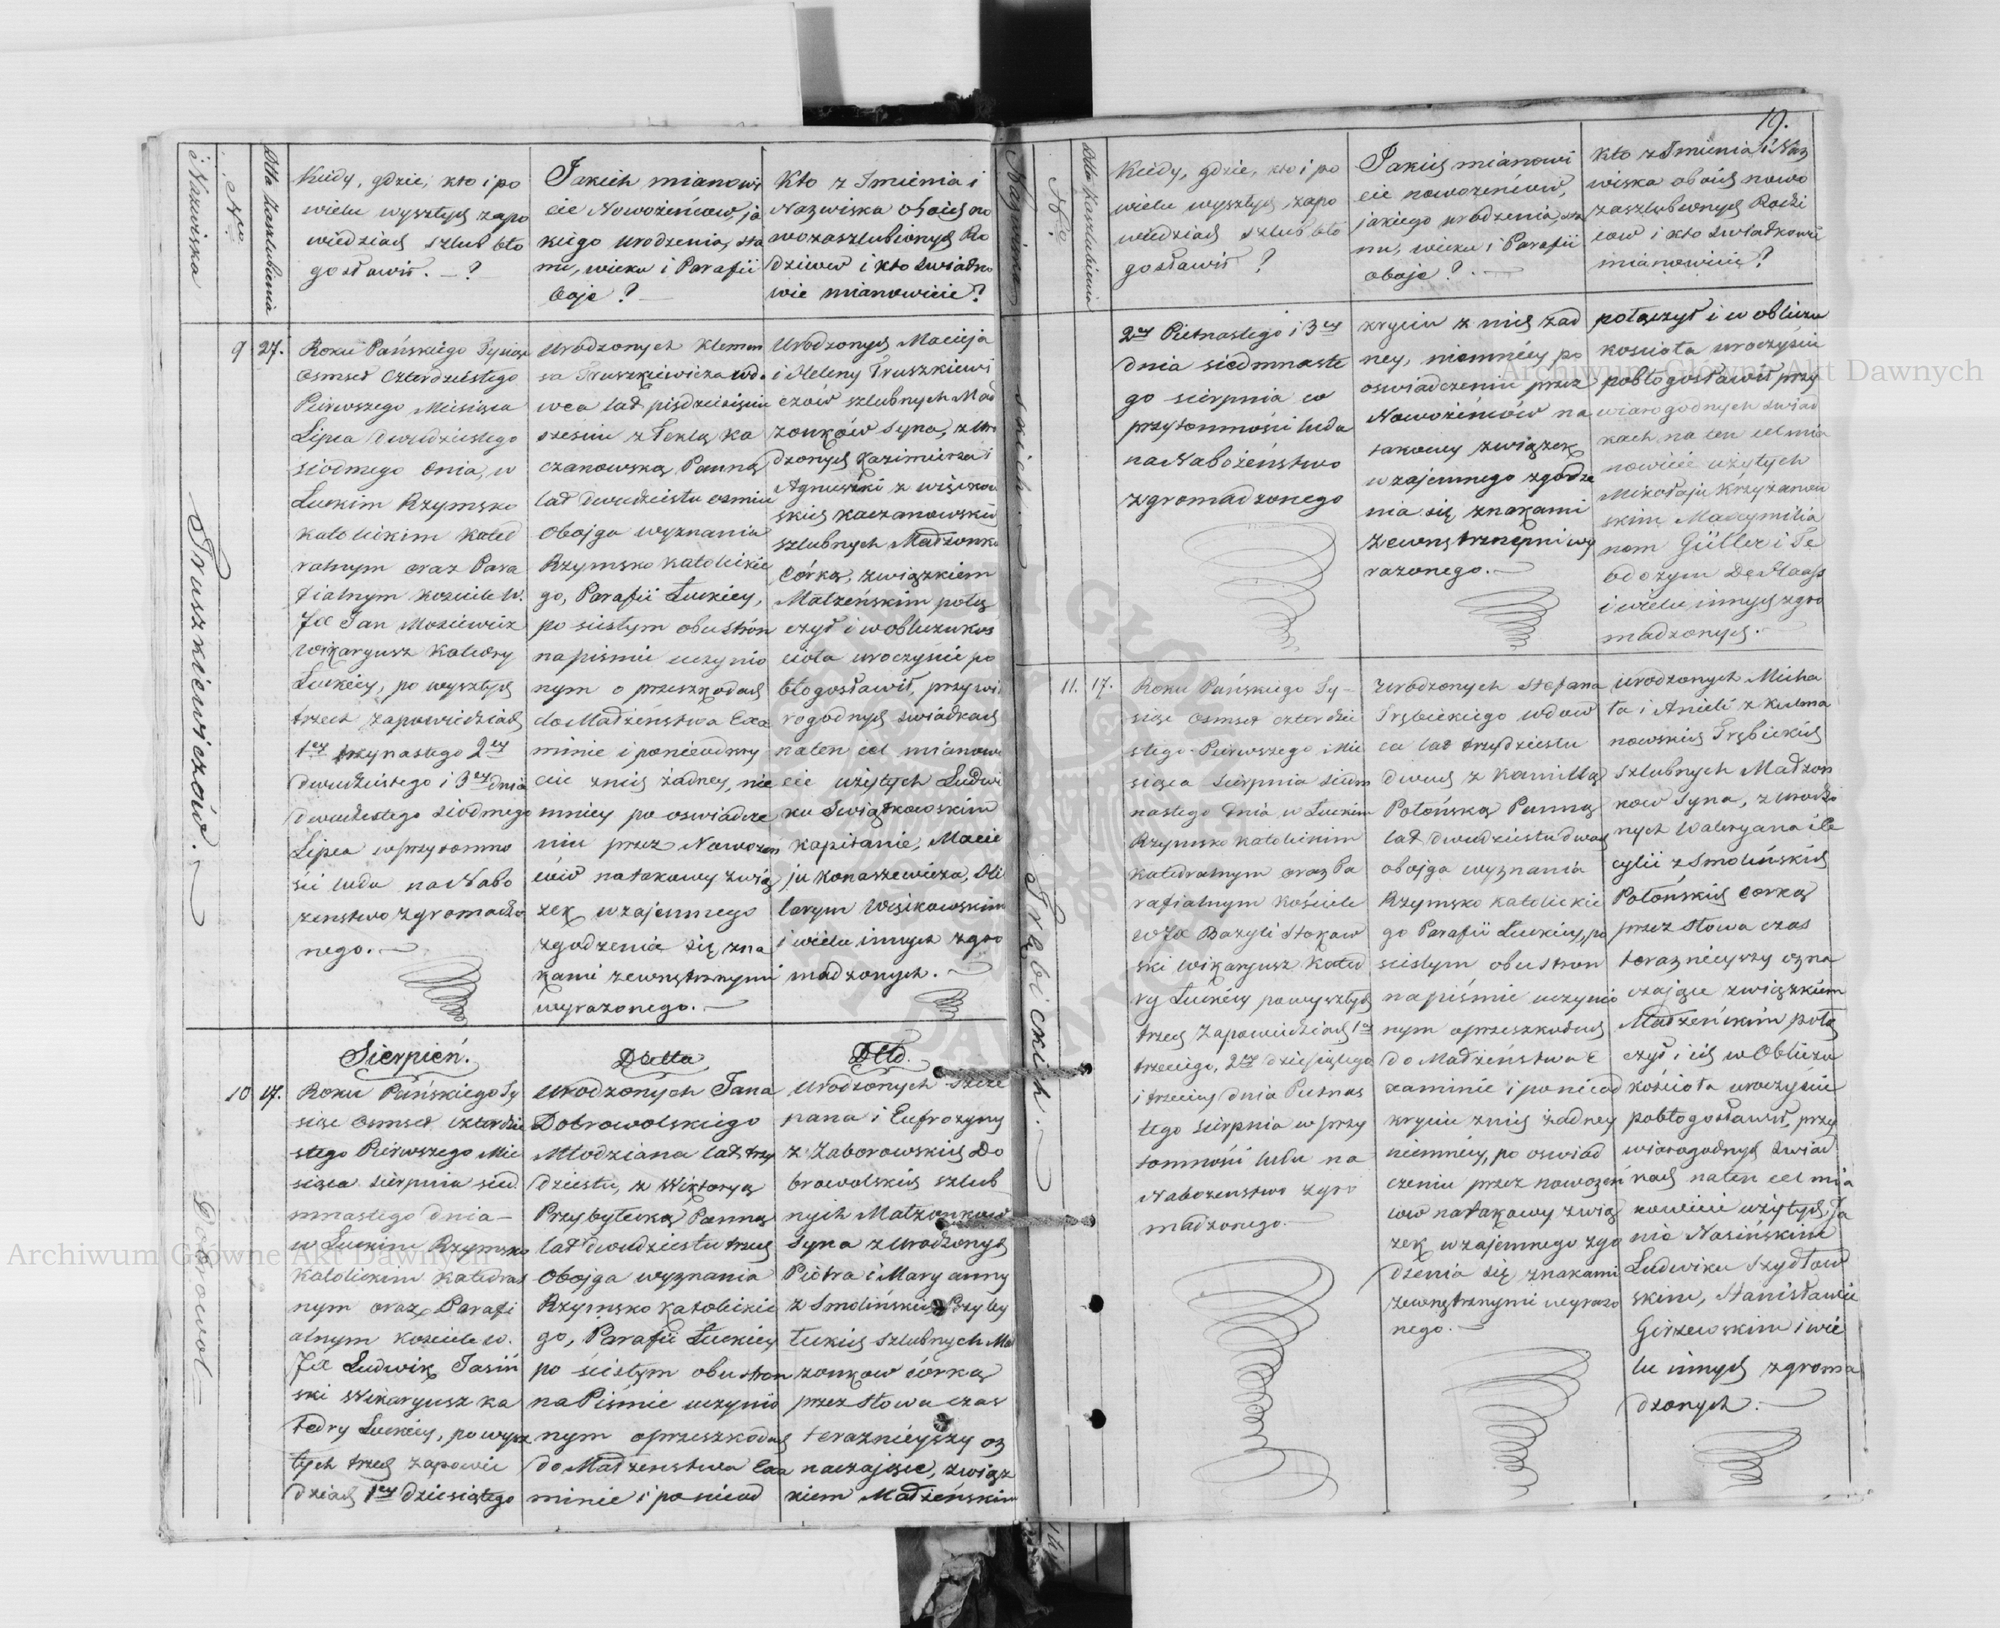 Nazwiska
Nro
Dta Zaszlubienia
Kiedy, gdzie, kto i po
wielu wyszłych zapo
wiedziach szlub bło
gosławił. — ?
Jakich mianowi
cie Nowożeńcow, ja
kiego urodzenia, sta
nu, wieku i Parafii
boje ? —
Kto z Imienia i
Nazwiska oboich no
wozaszlubionych Ro
dziców i kto świadko
wie mianowicie ?
Truszkiewiczów. —
9 27.
Roku Pańskiego Tysiąc
osmset czterdziestego
Pierwszego Miesiąca
Lipca dwudziestego
siódmego dnia, w
Łuckim Rzymsko
katolickim Kated
ralnym oraz Para
fialnym kościele W.
JX Jan Mosiewicz
wikaryusz Katedry
Łuckiey, po wyszłych
trzech zapowiedziach
1ey trzynastego 2ey
dwudziestego i 3ey dnia
dwudziestego siódmego
Lipca w przytomno
ści ludu na Nabo
żenstwo zgromadzo
nego. —
Urodzonych Klemen
sa Truszkiewicza wdo
wca lat piędziesięciu
sześciu z Teklą Ka
czanowską Panną
lat dwudziestu osmiu
obojga wyznania
Rzymsko katolickie
go, Parafii Łuckiey,
po scisłym obustrón
na pismie uczynio
nym o przeszkodach
do Małżeństwa Exa
minie i ponieodkry
ciu z nich żadney, nie
mniey po oswiadcze
niu przez Nowożeń
ców na takowy zwią
zek wzajemnego
zgodzenia się zna
kami zewnętrznymi
wyrażonego. —
Urodzonych Macieja
i Heleny Truszkiewi
czów szlubnych Mał
żonków Syna, z Uro
dzonych Kazimierza i
Agnieszki z Wisikow
skich Kaczanowskich
szlubnych Małżonkó
Córką, związkiem
Małżeńskim połą
czył i w obliczu koś
cioła uroczyscie po
błogosławił, przy wia
rogodnych swiadkach
na ten cel mianowi
cie użytych Ludwi
ku Swiątkowskim
kapitanie, Macie
ju Konaszewiczu, Hi
larym Wisikowskim
i wielu innych zgro
madzonych. —
Dobrowol—
10 17.
Sierpień.
Roku Pańskiego Ty
siąc osmset czterdzie
stego Pierwszego Mie
siąca Sierpnia sied
mnastego dnia —
w Łuckim Rzymsko
Katolickim Katedral
nym oraz Parafi
alnym kościele W.
JX Ludwik Jasiń
ski Wikaryusz Ka
tedry Łuckiey, po wysz
łych trzech zapowie
dziach 1ey dziesiątego
Detto
Urodzonych Jana
Dobrowolskiego
Młodziana lat trzy
dziestu, z Wiktoryą
Przybytecką Panną
lat dwudziestu trzech
obojga wyznania
Rzymsko katolickie
go, Parafii Łuckiey
po ścisłym obustron
na Piśmie uczynio
nym o przeszkodach
do Małżenstwa Exa
minie i ponieod
Dtto.
Urodzonych Szcze
pana i Eufrozyny
z Zaborowskich Do
browolskich szlub
nych Małżonkow
Syna z Urodzonych
Piotra i Maryanny
z Smolińskich Przyby
łuckich szlubnych Mał
żonkow córką
przez słowa czas
terazniéyszy oz
naczające, związ
kiem Małżeńskim
19.
Nazwiska
Nro
Dta Zaszlubienia
Kiedy, gdzie, kto i po
wielu wyszłych zapo
wiedziach szlub bło
gosławił ?
Jakich mianowi
cie nowożeńców,
jakiego urodzenia, sta
nu, wieku i Parafii
oboje ? —
Kto z Imienia i Naz
wiska oboich nowo
zaszlubionych Rodzi
cow i kto świadkowie
mianowicie ?
skich.
2ey Pietnastego i 3ey
dnia siedmnaste
go sierpnia w
przytomności ludu
na Nabożeństwo
zgromadzonego
kryciu z nich żad
ney, niemniey po
oswiadczeniu przez
Nowożeńców na
takowy związek
wzajemnego zgodze
nia się znakami
zewnętrznemi wy
rażonego. —
połączył i w obliczu
kościoła uroczyście
pobłogosławił przy
wiarogodnych świad
kach na ten cel mia
nowicie użytych
Mikołaju Krzyżanow
skim Maxymilia
nom Güller i Te
odozym De Maass
i wielu innych zgro
madzonych. —
Trębickich. —
11. 17.
Roku Pańskiego Ty-
siąc osmset czterdzie
stego Pierwszego Mie
siąca Sierpnia siedm
nastego dnia w Łuckim
Rzymsko katolickim
Katedralnym oraz Pa
rafialnym kościele
WJX Bazyli Stokow
ski Wikaryusz Kated
ry Łuckiéy po wyszłych
trzech Zapowiedziach 1ey
trzeciego, 2ey dziesiątego
i trzeciey dnia Pietnas
tego sierpnia w przy
tomności ludu na
Nabozenstwo zgro
madzonego. —
Urodzonych Stefana
Trębickiego wdow
ca lat trzydziestu
dwuch z Kamillą
Połońską Panną
lat dwudziestu dwuch
obojga wyznania
Rzymsko katolickie
go Parafii Łuckiey, po
scisłym obustron
na piśmie uczynio
nym o przeszkodach
do Małżeństwa E
xaminie i ponieod
kryciu z nich żadney
niemniéy, po oswiad
czeniu przez nowożeń
ców na takowy zwią
zek wzajemnego zgo
dzenia się znakami
zewnętrznymi wyrażo
nego. —
Urodzonych Micha
ła i Anieli z Kulma
nowskich Trębickich
szlubnych Małżon
kow Syna, z Urodzo
nych Waleryana i Ce
cylii z Smolińskich
Połońskich córką
przez słowa czas
teraznieyszy ozna
czające związkiem
Małżeńskim połą
czył i ich w Obliczu
kościoła uroczyście
pobłogosławił, przy
wiarogodnych Swiad
kach na ten cel mia
nowicie użytych, Ja
nie Nasińskim
Ludwiku Szydłow
skim, Stanisławie
Giżewskim i wie
lu innych zgroma
dzonych. —
Archiwum Główne Akt Dawnych
Archiwum Główne Akt Dawnych